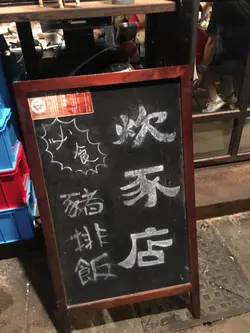 炊豕店
必食
豬排飯